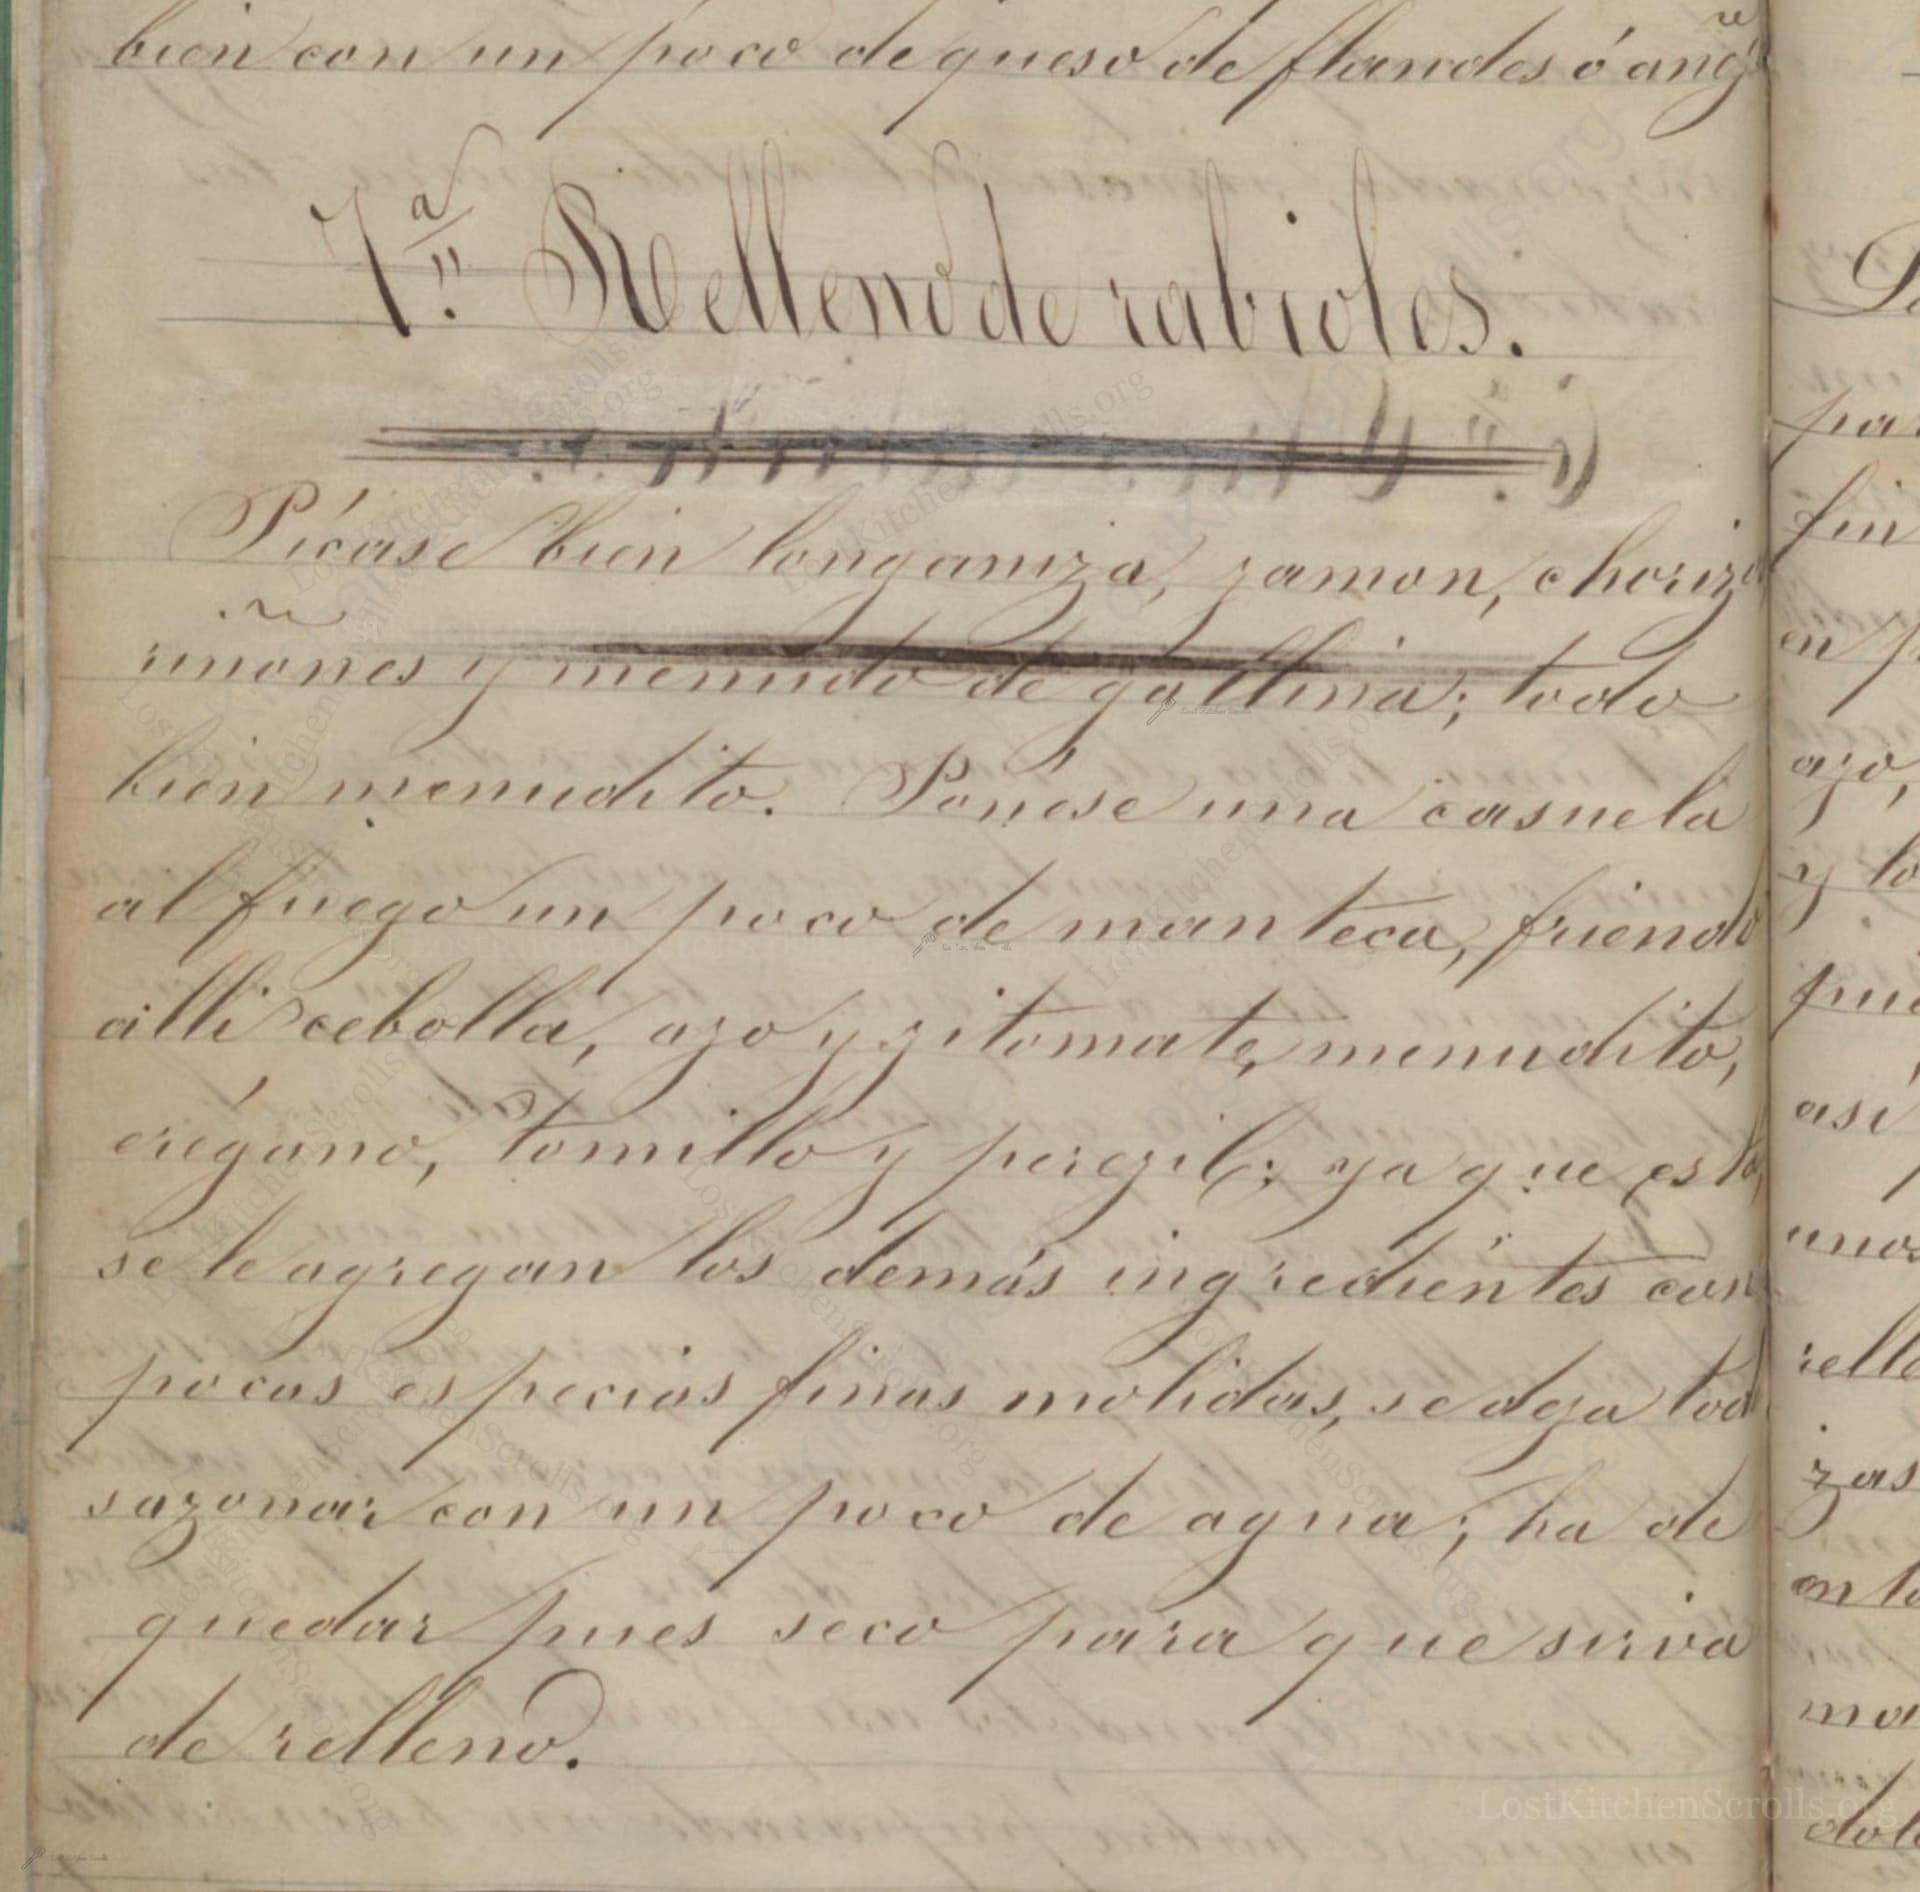 bien con un poco de queso de flandes ó
7ª Relleno de rabioles.
Pícase bien longaniza, jamon, chorizo
riñones y menudo de gallina; todo
bien menudito. Pónese una casuela
al fuego un poco de manteca, friendo
alli cebolla, ajo y jitomate, menudito,
orégano, tomillo y perejil; ya que esto,
se le agregan los demás ingredientes con
pocas especias finas molidas, se deja todo
sazonar con un poco de agua; ha de
quedar pues seco para que sirva
de relleno.
pa
fin
en p
ajo,
y lo
así
unos
zas
en lo
ma
LostKitchenScrolls.org